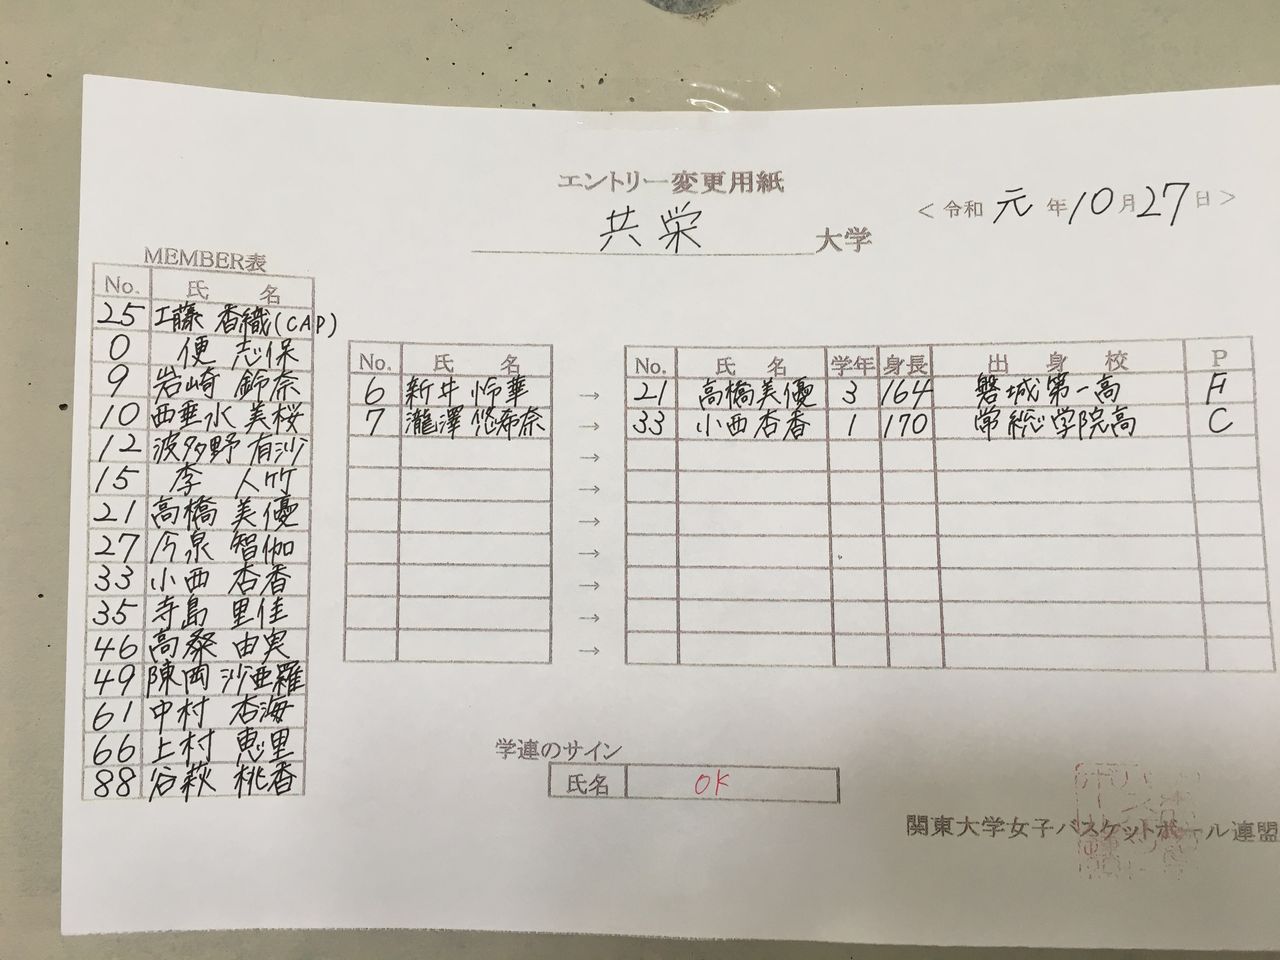 エントリー変更用紙
＜令和 元 年 10月27日＞
共栄 大学
MEMBER表
No. 氏 名
25 工藤 香織(CAP)
0 便 志保
9 岩崎 鈴奈
10 西垂水 美桜
12 波多野 有沙
15 李 人竹
21 高橋 美優
27 今泉 智伽
33 小西 杏香
35 寺島 里佳
46 高桑 由実
49 陳岡 沙亜羅
61 中村 杏海
66 上村 恵里
88 谷萩 桃香
No. 氏 名 No. 氏 名 学年 身長 出身校 P
6 新井 怜華 → 21 高橋美優 3 164 磐城第一高 F
7 瀧澤 悠希奈 → 33 小西杏香 1 170 常総学院高 C
→
→
→
→
→
→
→
学連のサイン
氏名 OK
関東大学女子バスケットボール連盟